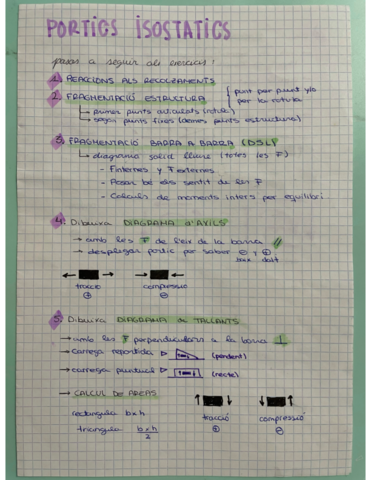 PORTICS ISOSTATICS
pasos a seguir als exercicis:
1) REACCIONS ALS RECOLZAMENTS
2. FRAGMENTACIÓ ESTRUCTURA { punt per punt y/o
per la rotula
→ primer punts articulats (rotula)
→ segon punts fixes (demes punts estructura)
3. FRAGMENTACIÓ BARRA A BARRA (DSL)
→ diagrama solid lliure (totes les F)
- F internes y F externes
- Posar bé els sentit de les F
- Calculs de moments interns per equilibri
4. Dibuixa DIAGRAMA d'AXILS
→ amb les F de l'eix de la barra //
→ desplegar portic per saber ⊖ y ⊕
baix dalt
tracció compressió
⊕ ⊖
5. Dibuixa DIAGRAMA de TALLANTS
→ amb les F perpendiculars a la barra ⊥
→ carrega repartida (pendent)
→ carrega puntual (recte)
→ CALCUL DE AREAS
rectangula bxh
triangula bxh/2
tracció compressió
⊕ ⊖